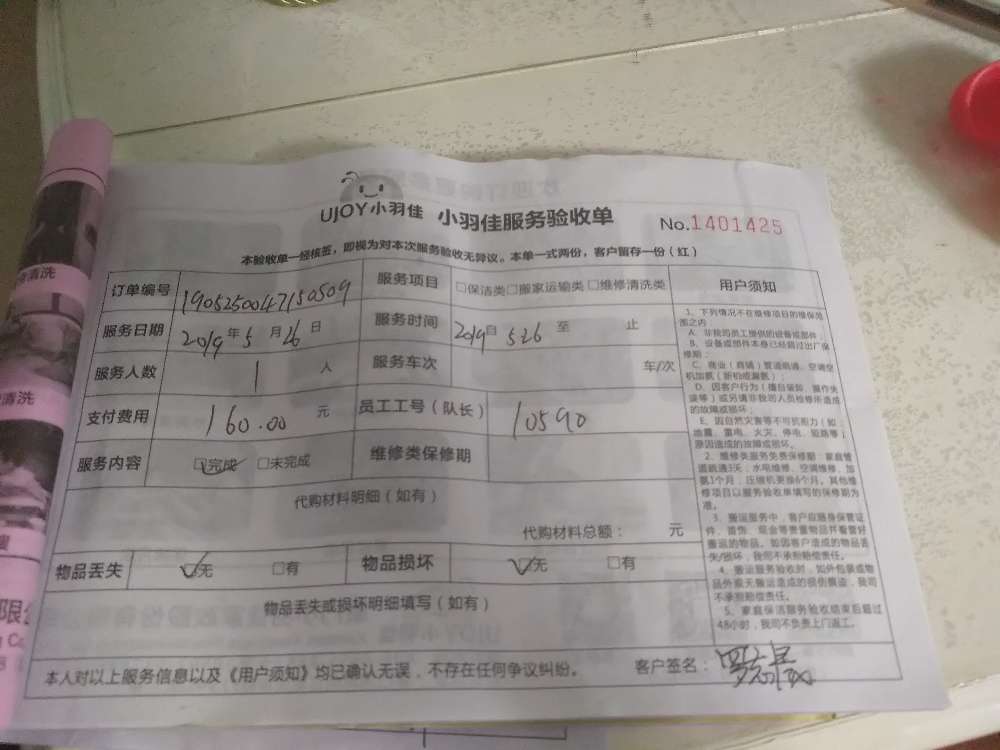 UJOY小羽佳 小羽佳服务验收单 No.1401425
本验收单一经核签，即视为对本次服务验收无异议。本单一式两份，客户留存一份（红）
订单编号 1905250047150509 服务项目 □保洁类□搬家运输类 □维修清洗类 用户须知
服务日期 2019年5月26日 服务时间 2019自 526 至 止
服务人数 1 人 服务车次 车/次
支付费用 160.00 元 员工工号（队长） 10590
服务内容 ☑完成 □未完成 维修类保修期
代购材料明细（如有）
代购材料总额： 元
物品丢失 ☑无 □有 物品损坏 ☑无 □有
物品丢失或损坏明细填写（如有）
1、下列情况不在维修项目的维保范
围之内
A、非我司员工提供的设备或部件；
B、设备或部件本身已经超过出厂保
修期；
C、商业（商铺）管道疏通、空调空
机加氨（新粕或漏氨）；
D、因客户行为（擅自装卸、操作失
误等）或另请非我司人员检修所造成
的故障或损坏；
E、因自然灾害等不可抗能力（如：
地震、雷电、火灾、停电、短路等）
原因造成的故障或损坏。
2、维修类服务免费保修期：家庭管
道疏通3天；水电维修、空调维修、加
氨1个月；压缩机更换6个月。其他维
修项目以服务验收单填写的保修期为
准。
3、搬运服务中，客户应随身保管证
件、首饰、现金等贵重物品并看管好
搬运的物品。如因客户造成的物品丢
失/损坏，我司不承担赔偿责任。
4、搬运服务验收时，如外包装或物
品外观无搬运造成的损伤痕迹，我司
不承担赔偿责任。
5、家庭保洁服务验收结束后超过
48小时，我司不负责上门返工。
本人对以上服务信息以及《用户须知》均已确认无误，不存在任何争议纠纷。 客户签名：
清洗
清洗
限公